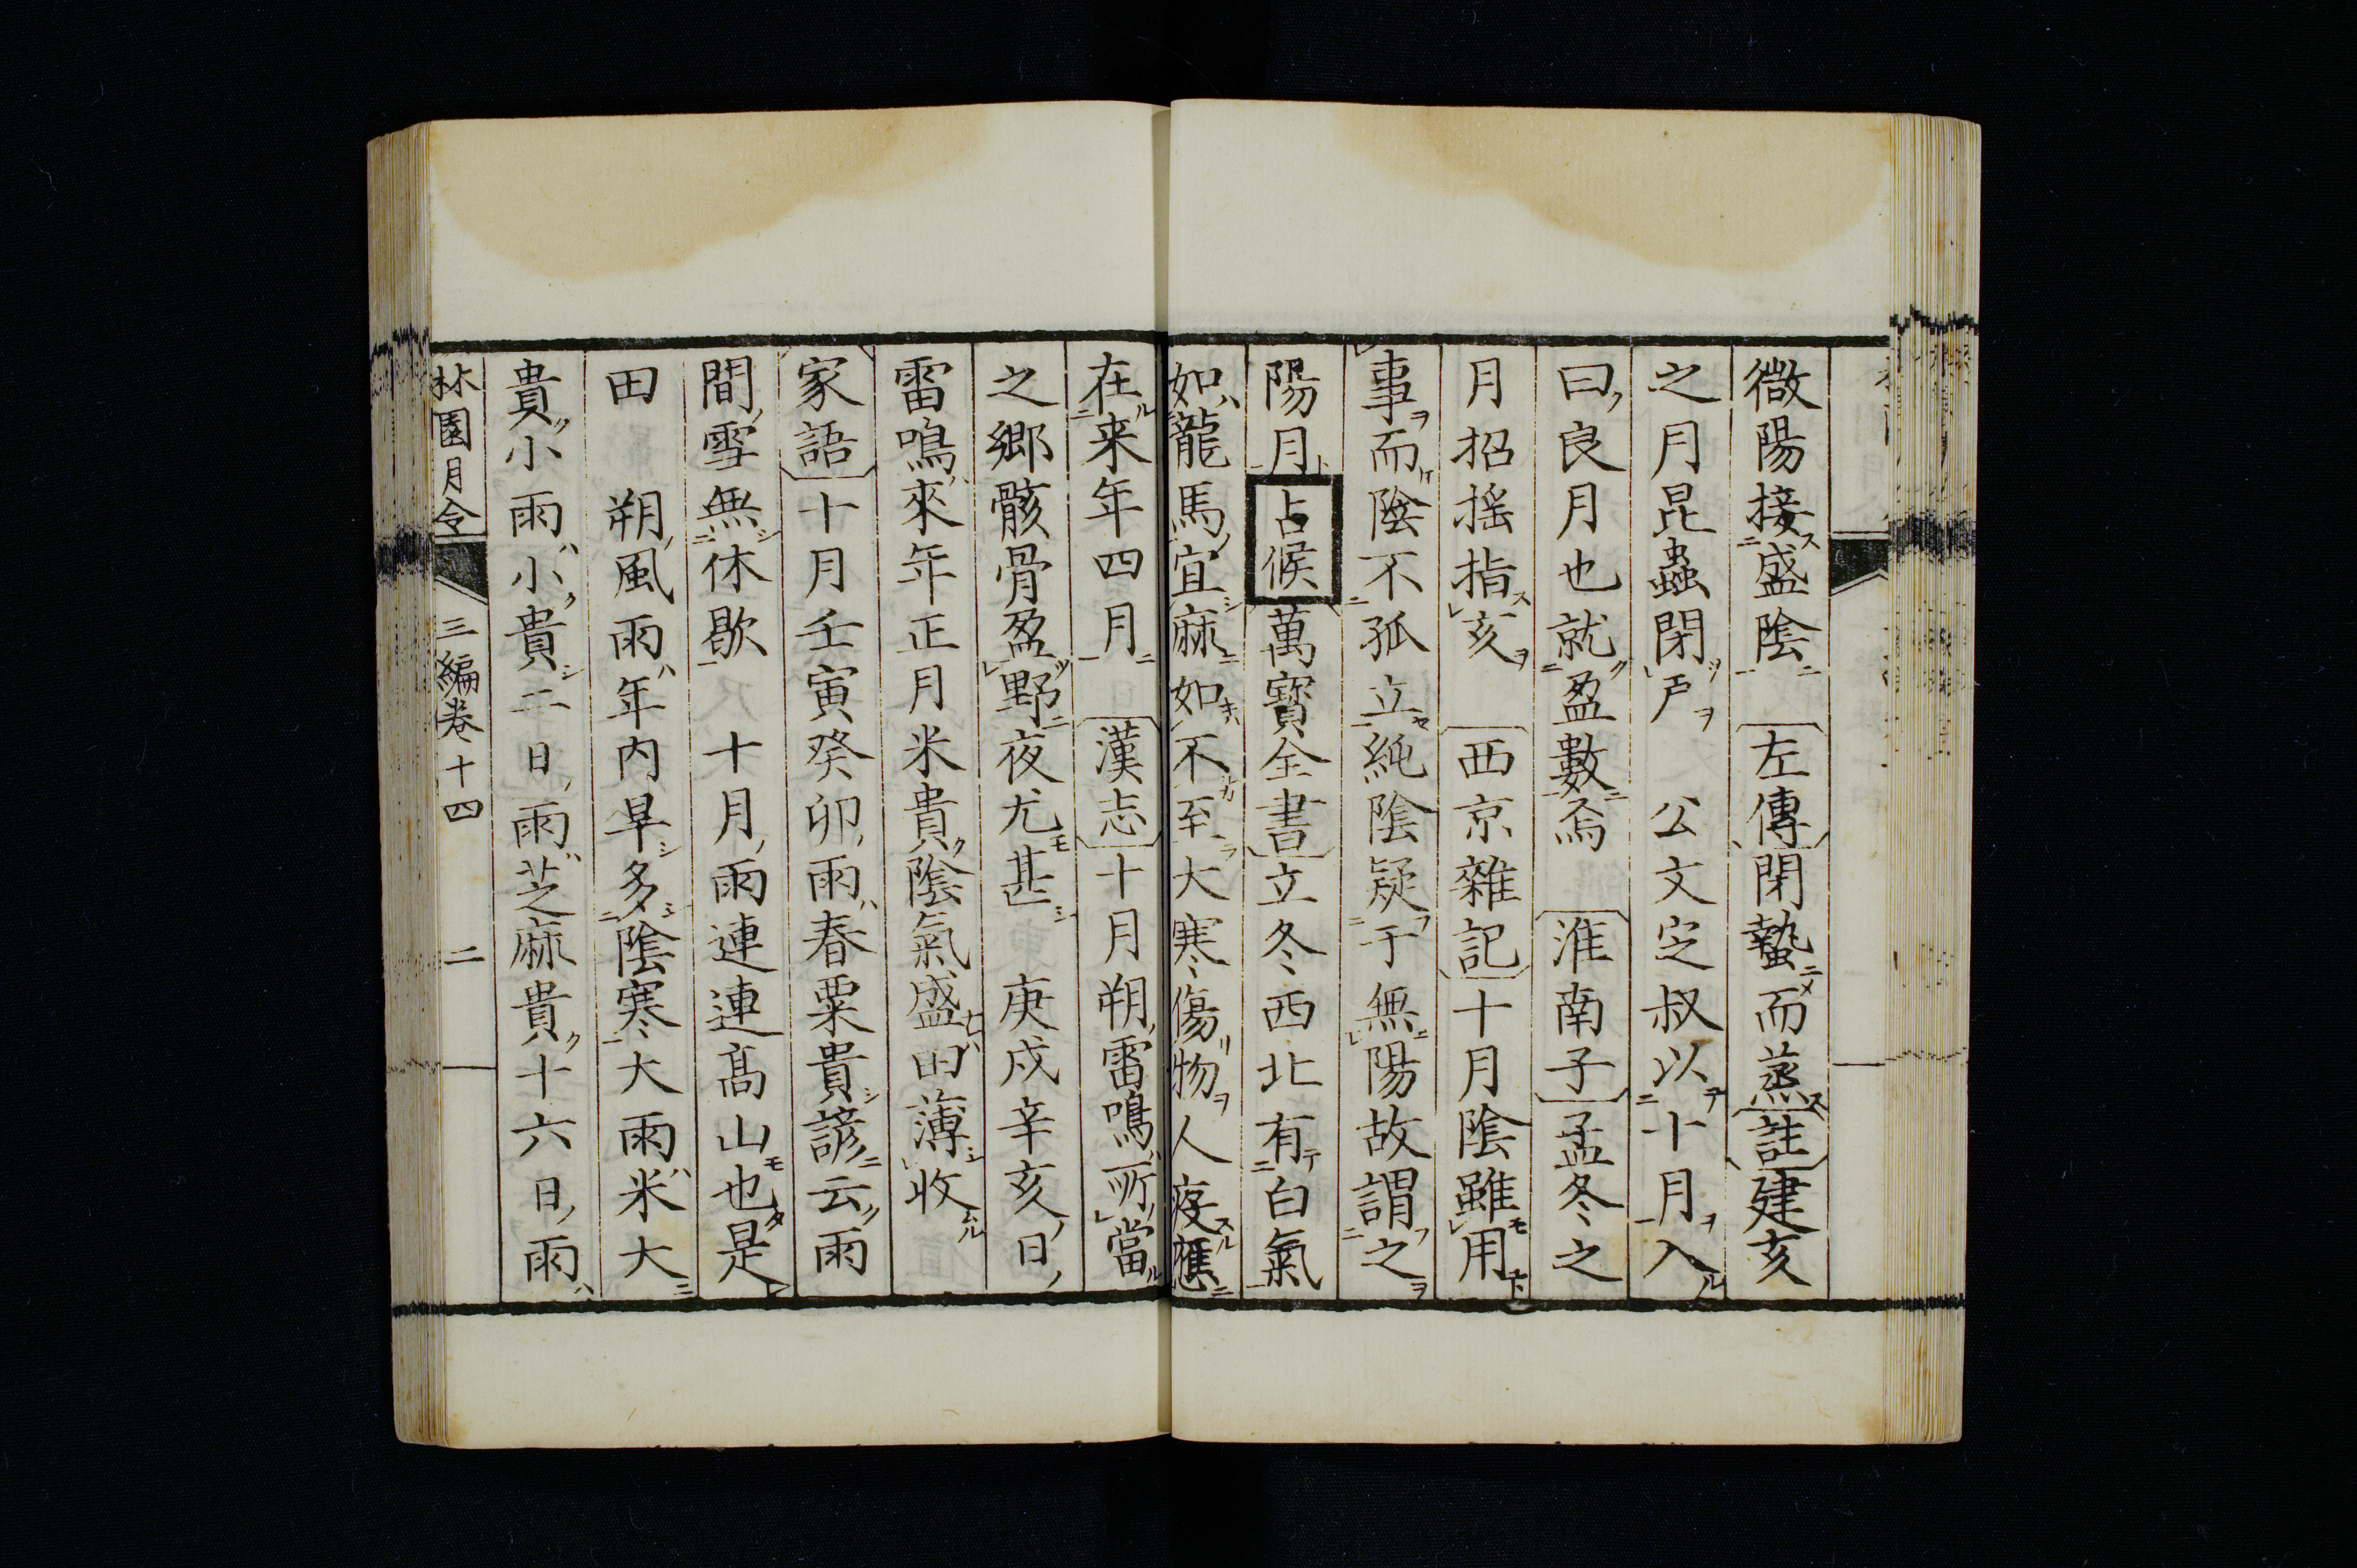 微陽接盛陰　左傳閉蟄而蒸註建亥
之月昆蟲閉戸　公文定叔以十月入
曰良月也就盈數焉　淮南子孟冬之
月招摇指亥　西京雜記十月陰雖用
事而陰不孤立純陰疑于無陽故謂之
陽月占候萬寳全書立冬西北有白氣
如龍馬宜麻如不至大寒傷物人疫應
在来年四月　漢志十月朔雷鳴所當
之鄉骸骨盈野夜尤甚　庚戌辛亥日
雷鳴來年正月米貴陰氣盛田薄收
家語十月壬寅癸卯雨春粟貴諺云雨
間雪無休歇　十月雨連連髙山也是
田　朔風雨年内旱多陰寒大雨米大
貴小雨小貴二日雨芝麻貴十六日雨
林園月令　三編卷十四　二